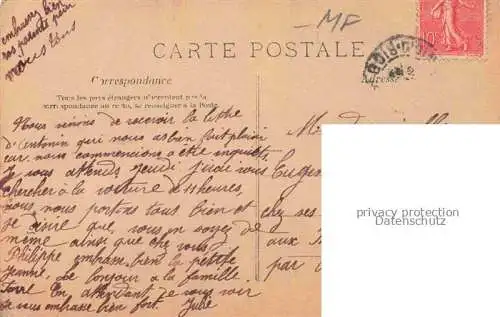 embrasser bien
vos parents pour
nous tous
MF
CARTE POSTALE
Correspondance
Adresse
Tous les pays étrangers n'acceptent pas la
correspondance au recto, se renseigner à la Poste
Nous venons de recevoir la lettre
d'Antonin qui nous as bien fait plaisir
car nous commencions a être inquiets
Je vous attends jeudi j'irai vous
chercher à la voiture a 5 heures
nous nous portons tous bien et
je désire que vous en soyez de
même ainsi que chez vous
Philippe embrasse bien la petite
Jeanne. Le bonjour a la famille
En attendant de vous voir
je vous embrasse bien fort. Julie
Eugén
chez ses
aux
par
privacy protection
Datenschutz